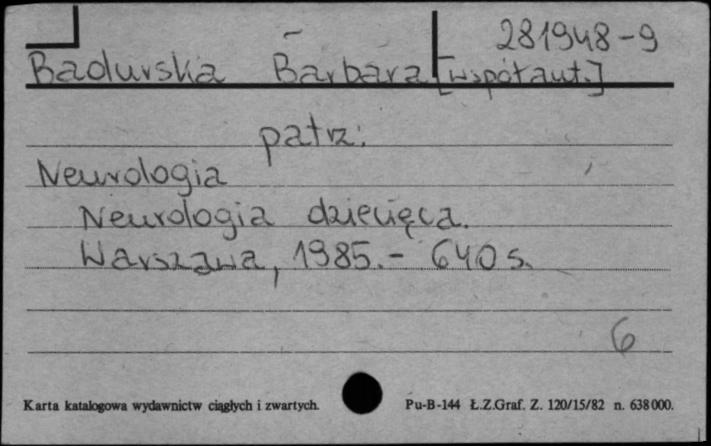 281948-9
Badurska Barbara [współaut.]
patrz:
Neurologia
Neurologia dziecięca.
Warszawa, 1985.- 640 s.
6
Karta katalogowa wydawnictw ciągłych i zwartych.
Pu-B-144 Ł.Z.Graf. Z. 120/15/82 n. 638000.